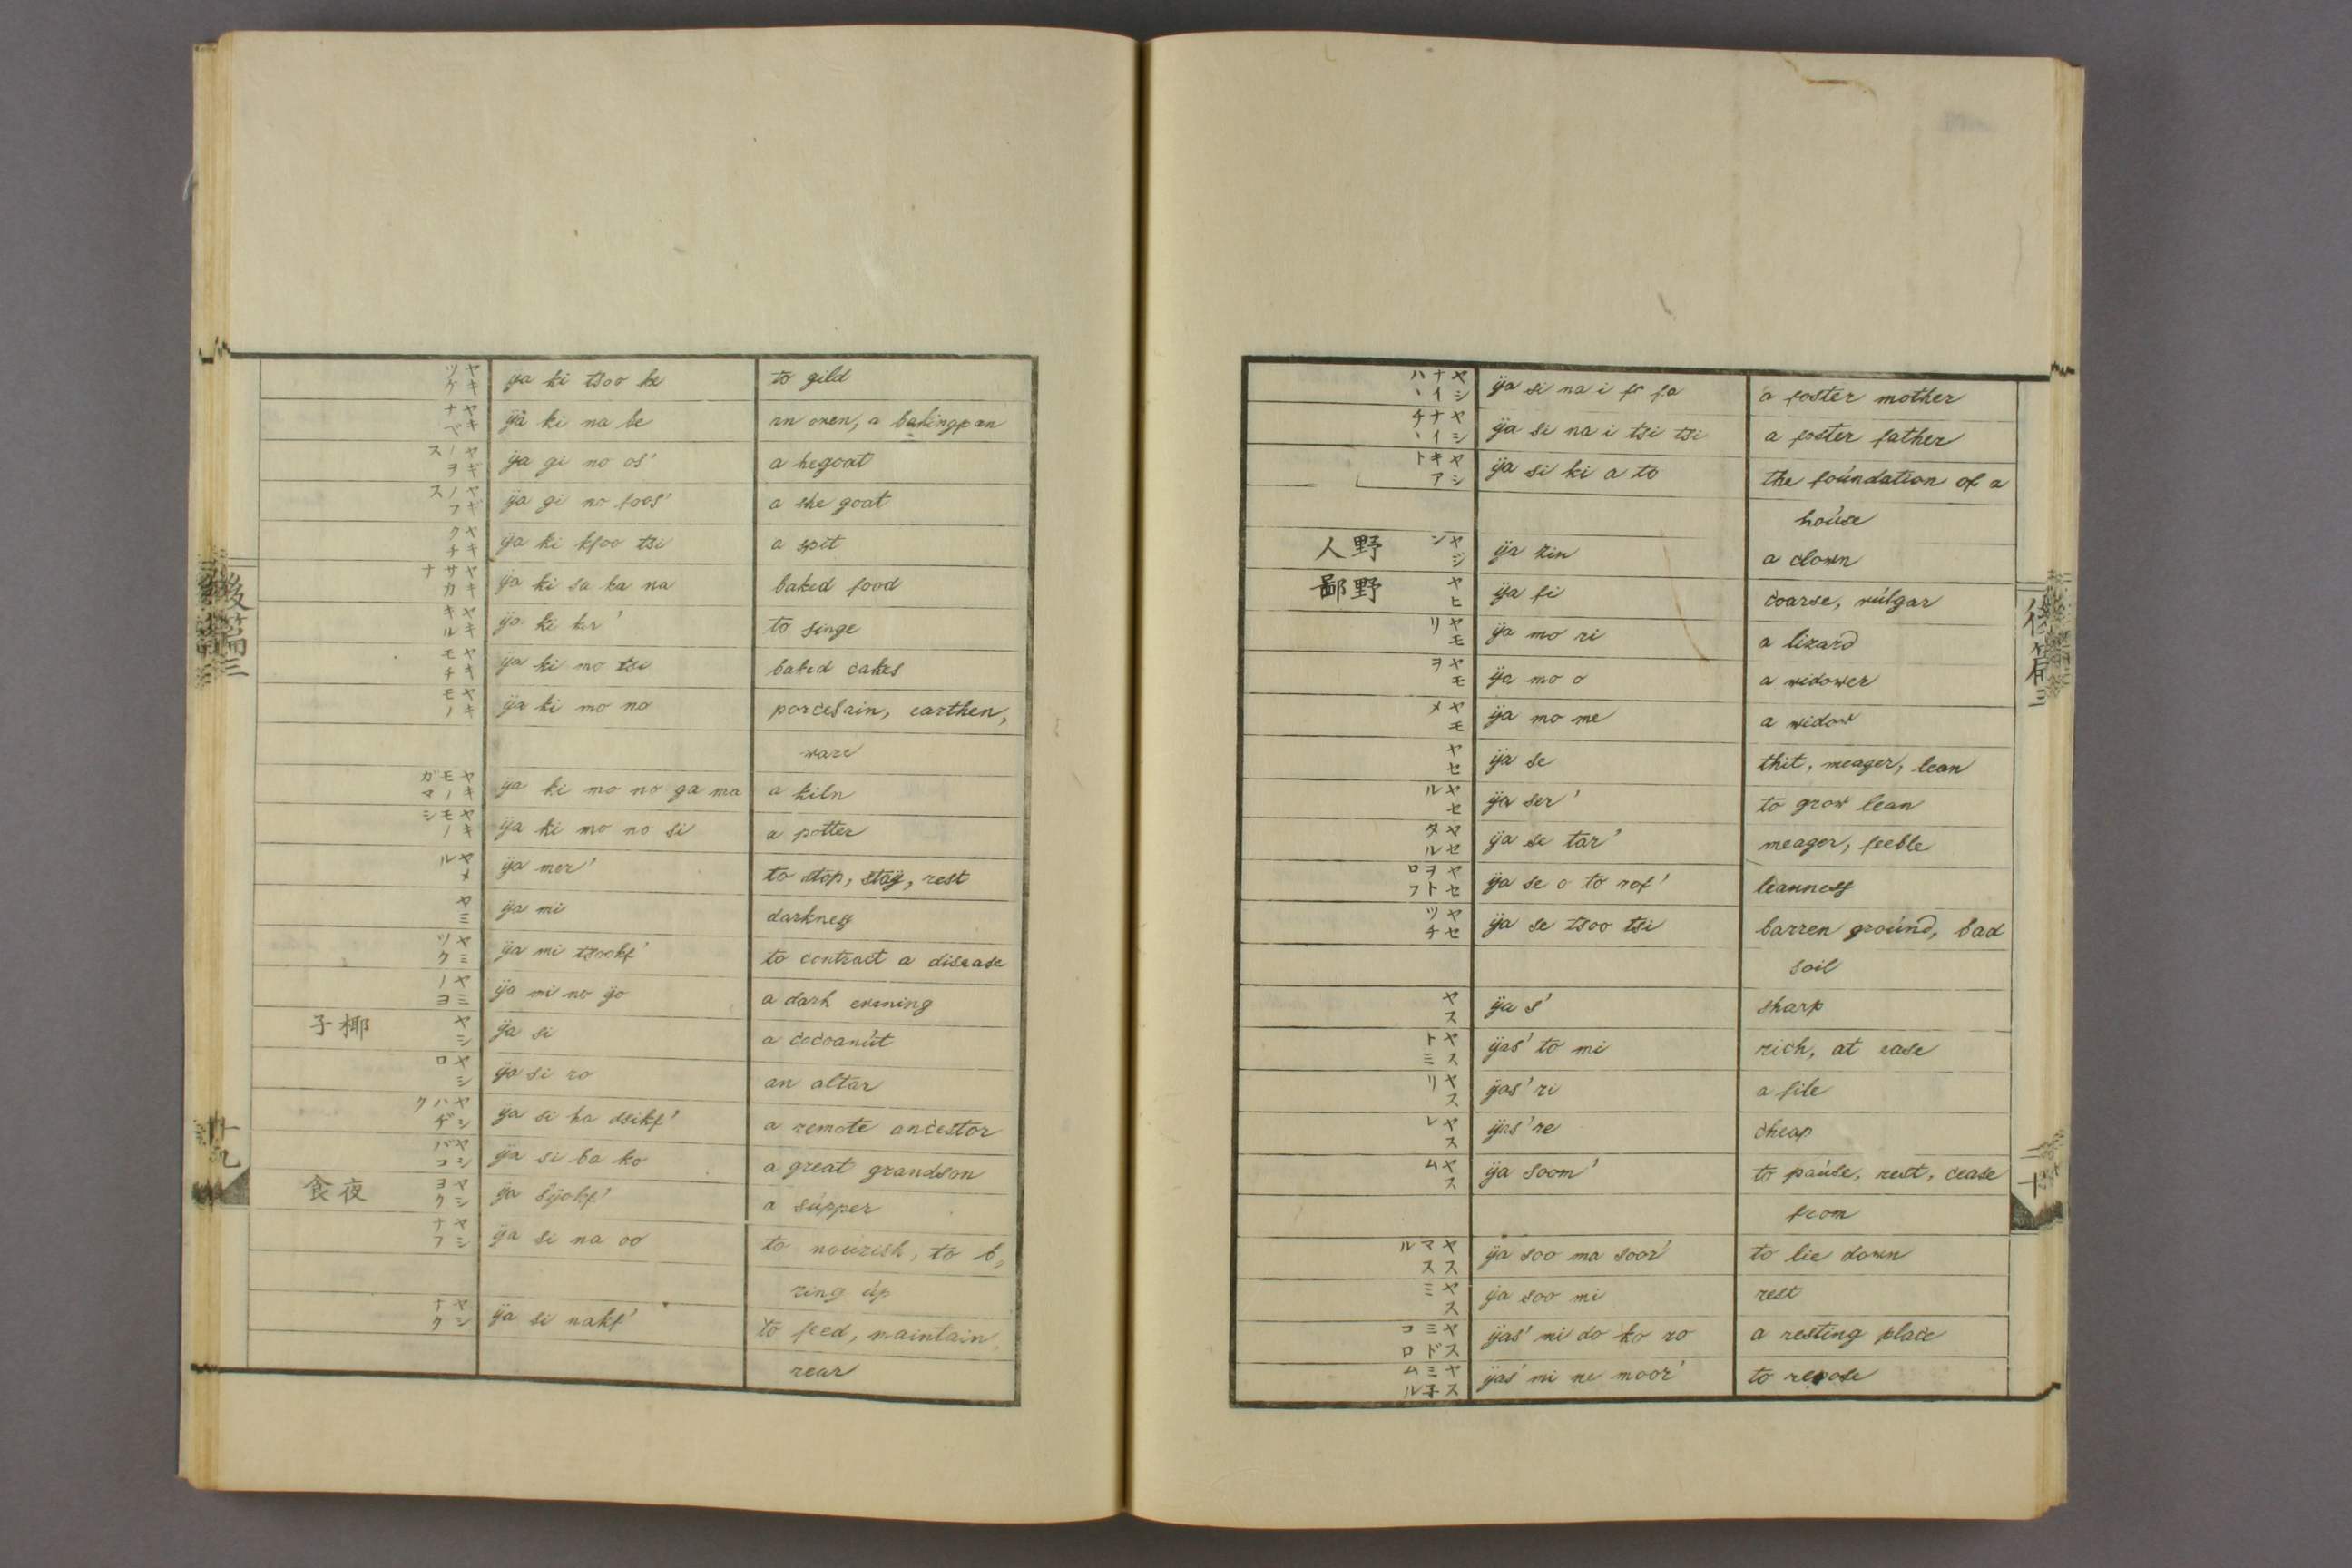 ヤキツケ ÿa ki tsoo ke to gild
ヤキナベ ÿa ki na be an oven, a bakingpan
ヤギノヲス ÿa gi no os' a hegoat
ヤギノフス ÿa gi no foos' a she goat
ヤキクチ ÿa ki kfoo tsi a spit
ヤキサカナ ÿa ki sa ka na baked food
ヤキキル ÿa ki kir' to singe
ヤキモチ ÿa ki mo tsi baked cakes
ヤキモノ ÿa ki mo no porcelain, earthen,
ware
ヤキモノガマ ÿa ki mo no ga ma a kiln
ヤキモノシ ÿa ki mo no si a potter
ヤメル ÿa mer' to stop, staÿ, rest
ヤミ ÿa mi darkness
ヤミツク ÿa mi tsookf' to contract a disease
ヤミノヨ ÿa mi no ÿo a dark evening
椰子 ヤシ ÿa si a cocoanút
ヤシロ ÿa si ro an altar
ヤシハヂク ÿa si ha dsikf' a remote ancestor
ヤシバコ ÿa si ba ko a great grandson
夜食 ヤシヨク ÿa sÿokf' a súpper
ヤシナフ ÿa si na oo to noúrish, to b,
ring úp
ヤシナク ÿa si nakf' to feed, maintain,
rear
後篇三
十九
ヤシナイハヽ ÿa si na i fa fa a foster mother
ヤシナイチヽ ÿa si na i tsi tsi a foster father
ヤシキアト ÿa si ki a to the foúndation of a
hoúse
野人 ヤジン ÿa zin a clown
野鄙 ヤヒ ÿa fi coarse, vúlgar
ヤモリ ÿa mo ri a lizard
ヤモヲ ÿa mo o a widower
ヤモメ ÿa mo me a widow
ヤセ ÿa se thit, meager, lean
ヤセル ÿa ser' to grow lean
ヤセタル ÿa se tar' meager, feeble
ヤセヲトロフ ÿa se o to rof' leanness
ヤセツチ ÿa se tsoo tsi barren groúnd, bad
soil
ヤス ÿa s' sharp
ヤストミ ÿas' to mi rich, at ease
ヤスリ ÿas' ri a file
ヤスレ ÿas' re cheap
ヤスム ÿa soom' to paúse, rest, cease
from
ヤスマスル ÿa soo ma soor' to lie down
ヤスミ ÿa soo mi rest
ヤスミドコロ ÿas' mi do ko ro a resting place
ヤスミ子ムル ÿas' mi ne moor' to repose
後篇三
二十